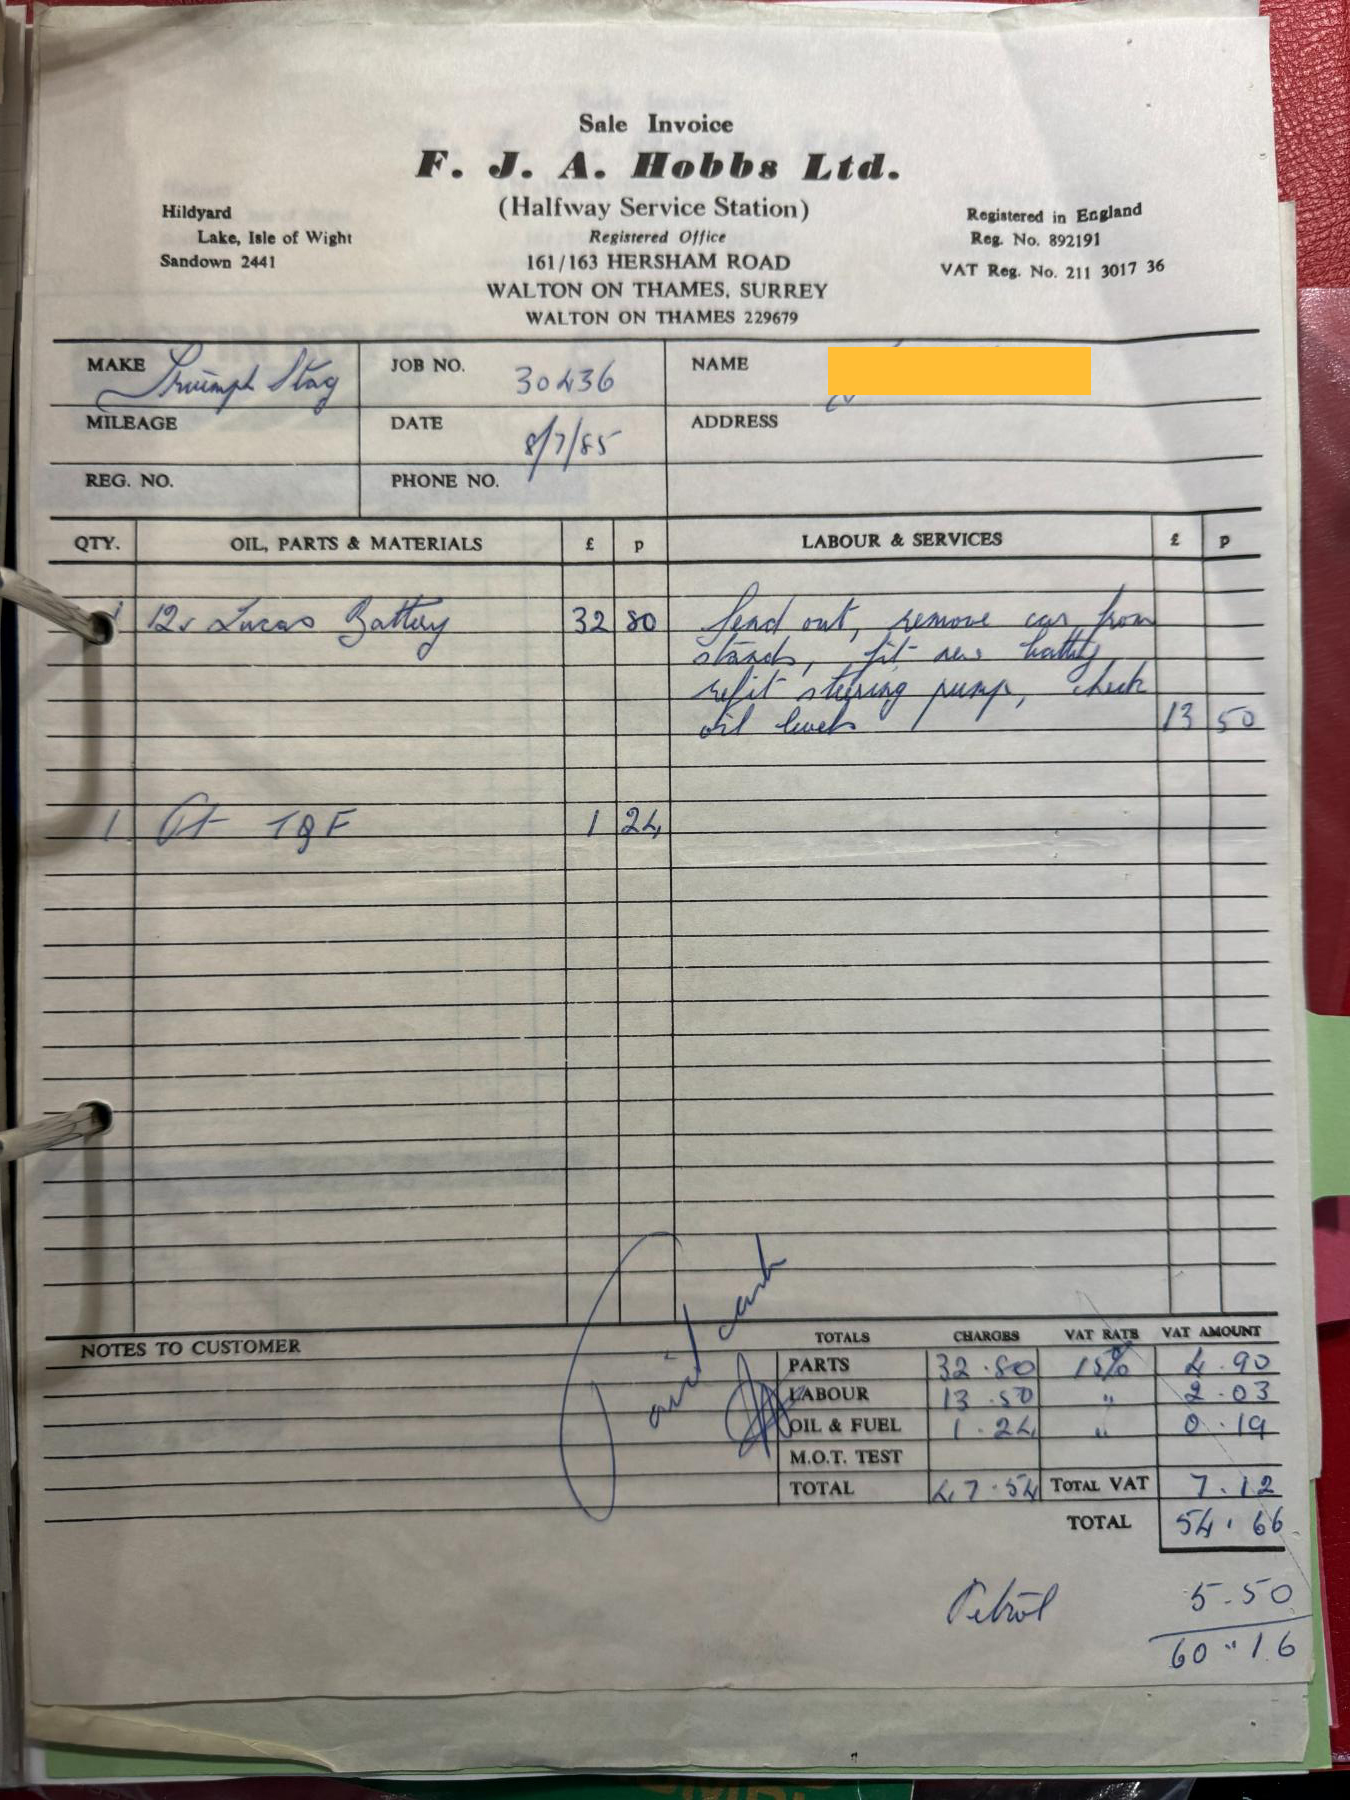 Sale Invoice
F. J. A. Hobbs Ltd.
(Halfway Service Station)
Hildyard
Lake, Isle of Wight
Sandown 2441
Registered Office
161/163 HERSHAM ROAD
WALTON ON THAMES, SURREY
WALTON ON THAMES 229679
Registered in England
Reg. No. 892191
VAT Reg. No. 211 3017 36
MAKE Triumph Stag JOB NO. 30436 NAME
MILEAGE DATE 8/7/85 ADDRESS
REG. NO. PHONE NO.
QTY. OIL, PARTS & MATERIALS £ p LABOUR & SERVICES £ p
1 12v Lucas Battery 32 80 Send out, remove car from
stands, fit new battery
refit steering pump, check
oil levels 13 50
1 Pt TQF 1 24
NOTES TO CUSTOMER
Paid cash
TOTALS CHARGES VAT RATE VAT AMOUNT
PARTS 32.80 15% 4.90
LABOUR 13.50 " 2.03
OIL & FUEL 1.24 " 0.19
M.O.T. TEST
TOTAL 47.54 TOTAL VAT 7.12
TOTAL 54.66
Petrol 5.50
60.16